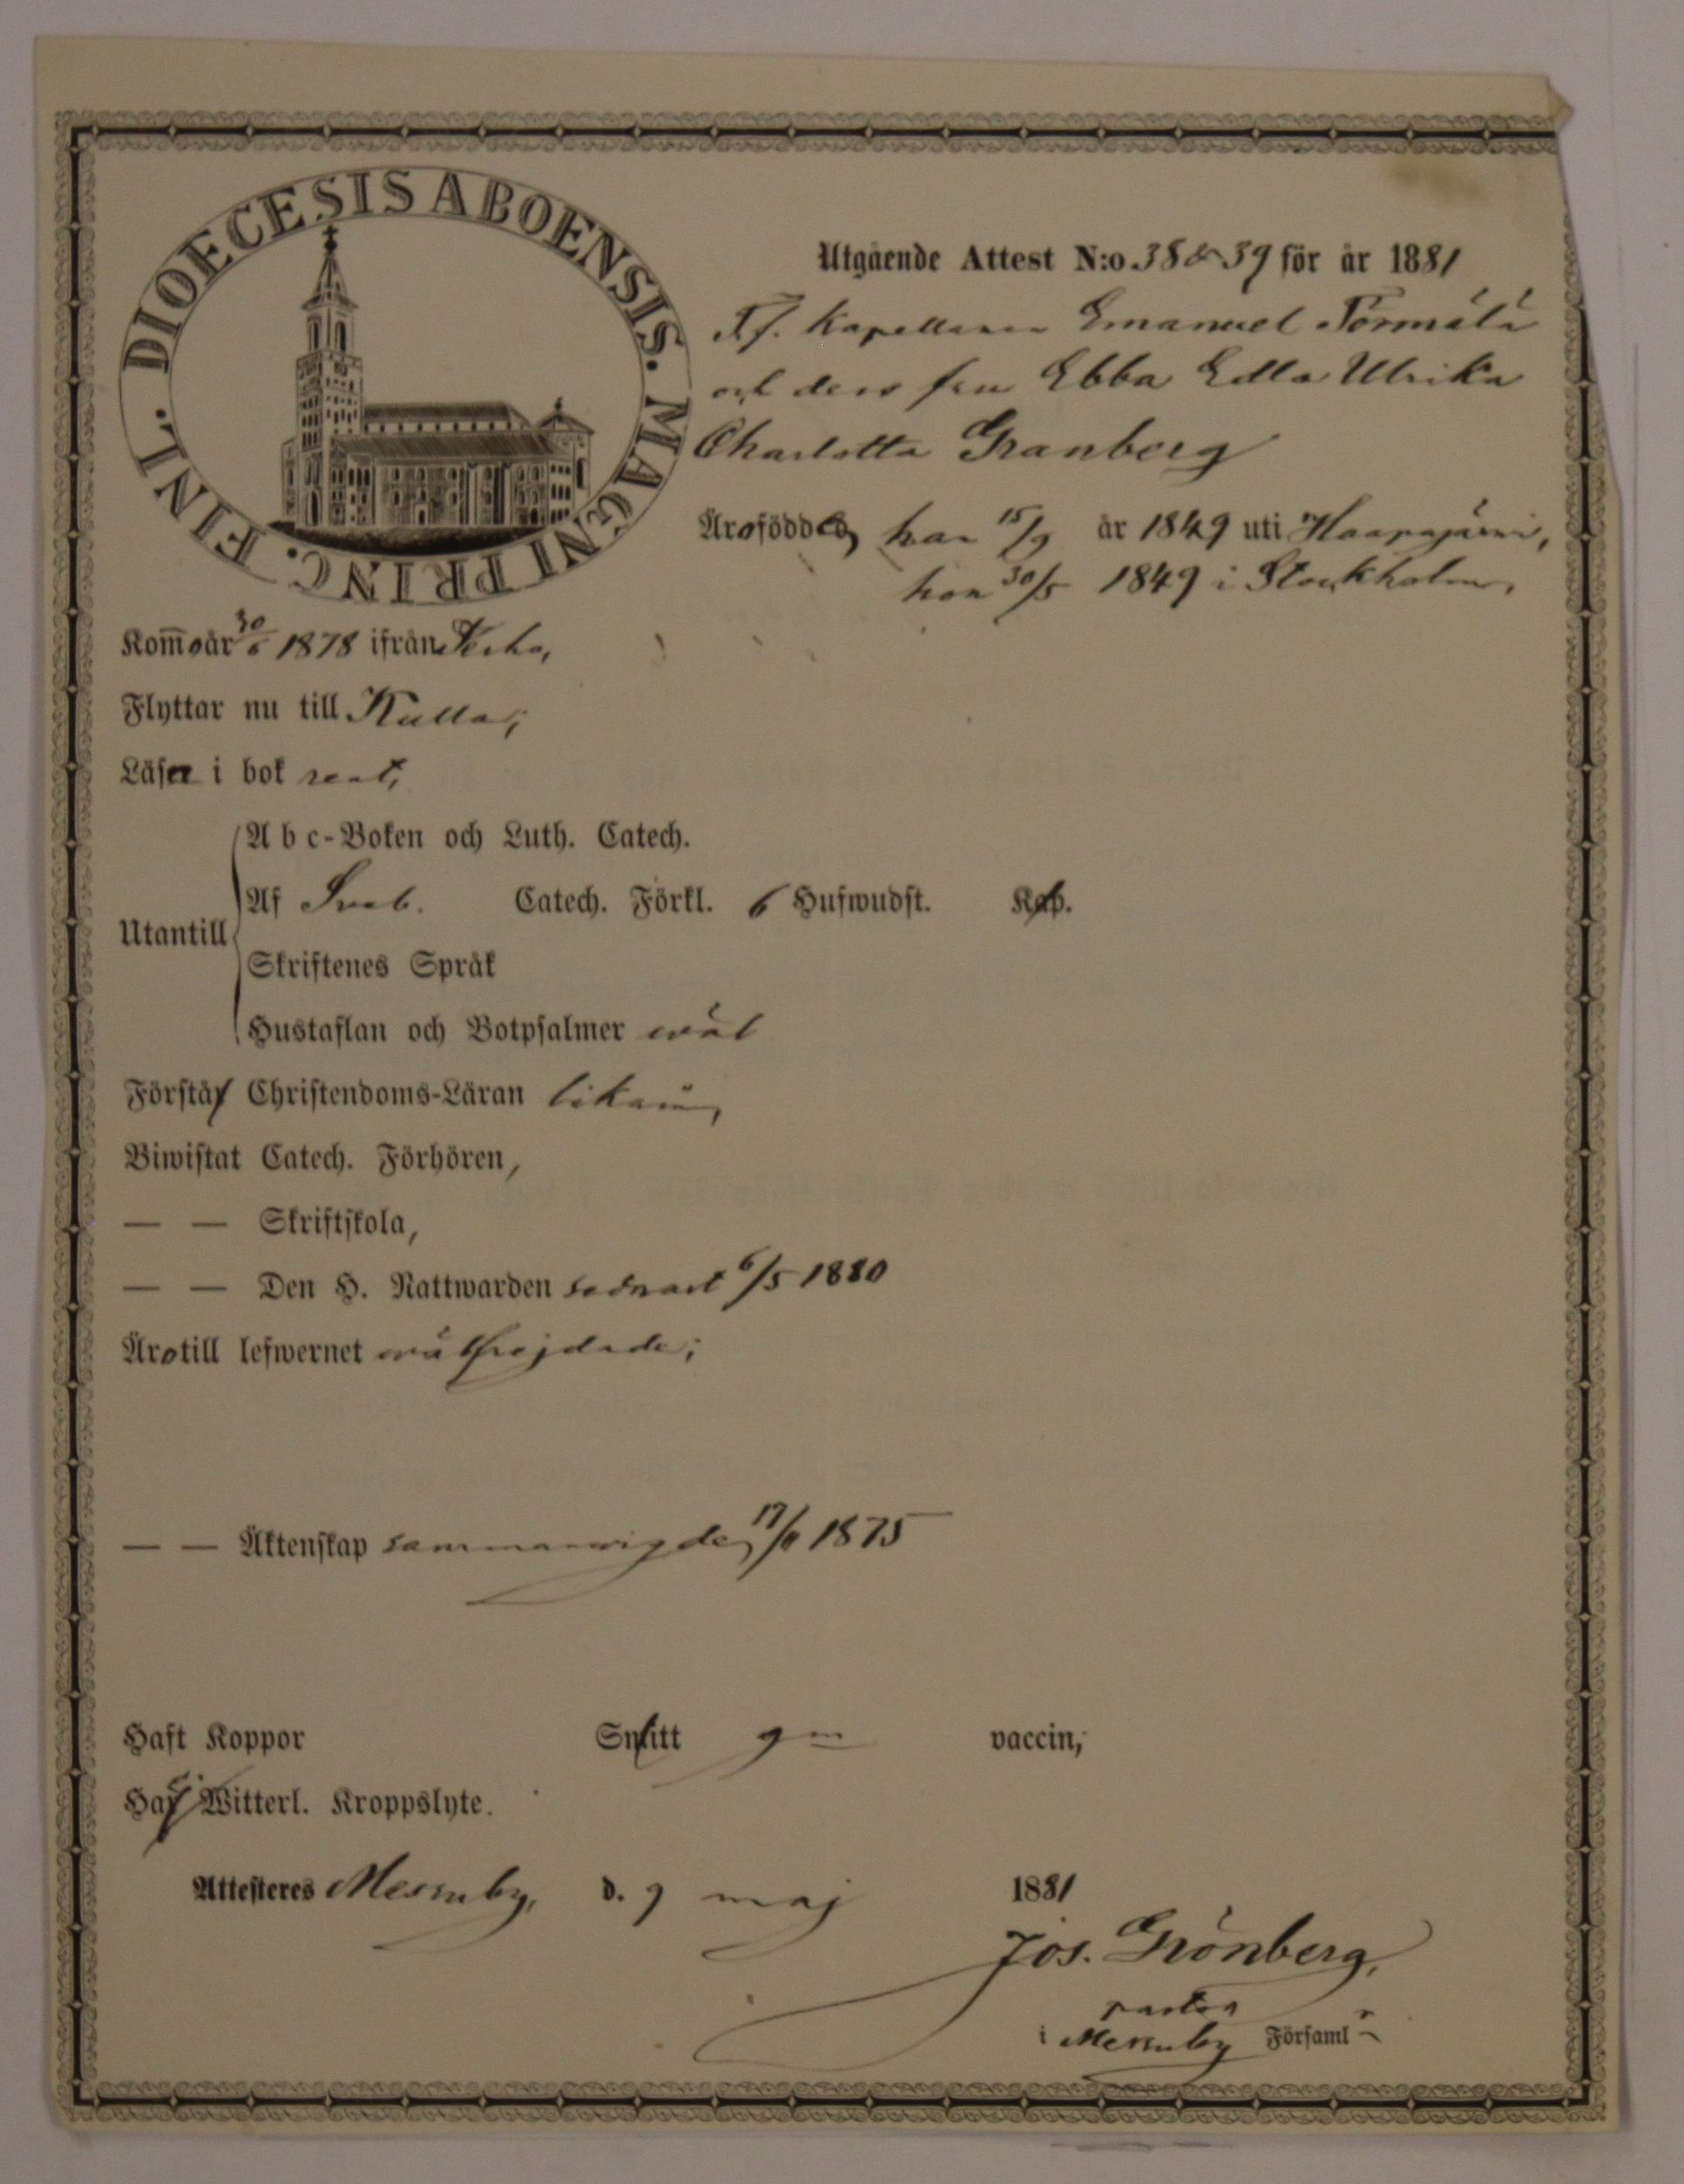 DIOECESIS ABOENSIS. MAGNI PRINC. FINL.
Utgående Attest N:o 38 & 39 för år 1881
T.f. Kapellanen Emanuel Törmälä
och dess fru Ebba Edla Ulrika
Charlotta Granberg
Äro födde, han 15/9 år 1849 uti Haapajärvi,
hon 30/5 1849 i Stockholm,
Kom̅o år 30/6 1878 ifrån
Flyttar nu till Kulla,
Läsa i bok rent,
Utantill
A b c-Boken och Luth. Catech.
Af Sveb. Catech. Förkl. 6 Hufwudst. Kap.
Skriftenes Språk
Hustaflan och Botpsalmer wäl
Förstå Christendoms-Läran likaså,
Biwistat Catech. Förhören,
— — Skriftskola,
— — Den H. Nattwarden sednast 6/5 1880
Äro till lefwernet wälfrejdade;
— — Äktenskap sammanwigde 17/11 1875
Haft Koppor Smitt gm vaccin,
Ha ej Witterl. Kroppslyte.
Attesteres Messuby, d. 9 maj 1881
Jos. Grönberg,
pastor
i Messuby Församl